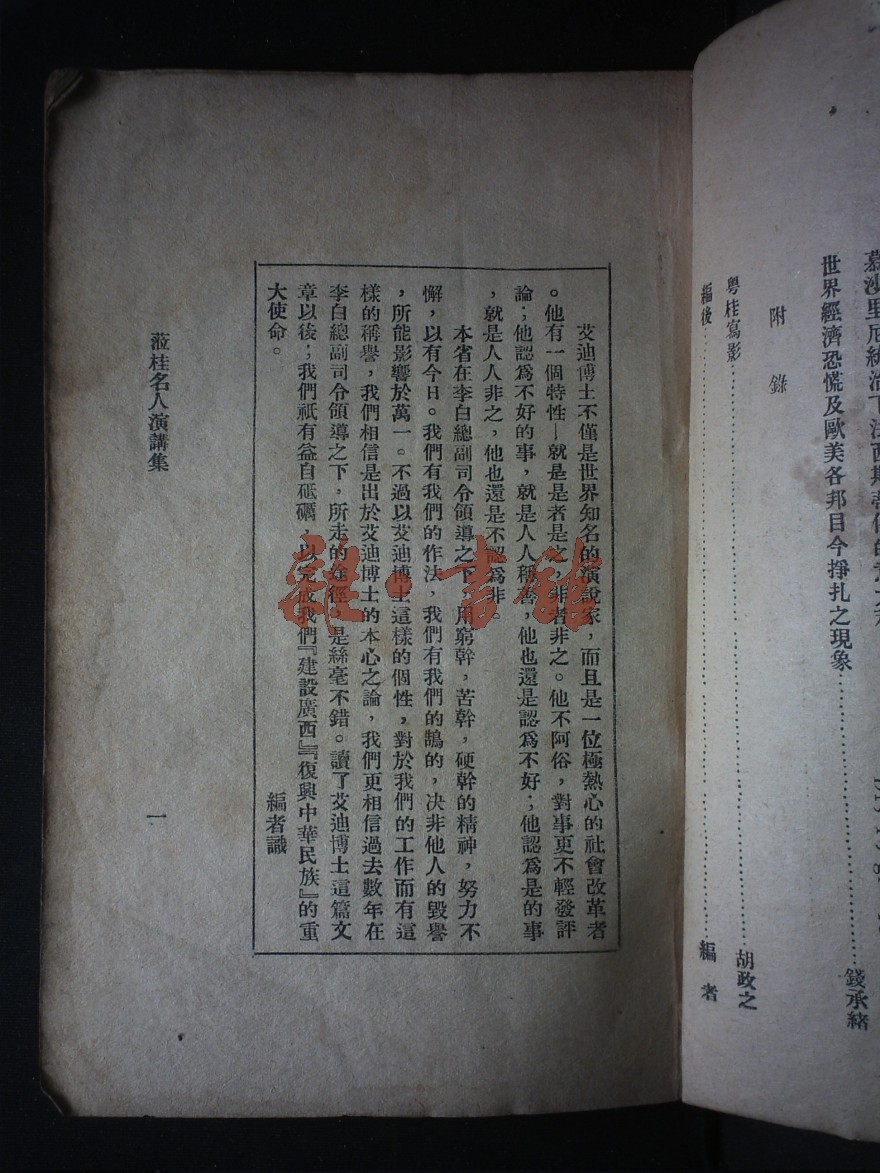 世界經濟恐慌及歐美各邦目今掙扎之現象……………錢承緒
附錄
粤桂寫影……………胡政之
編後……………編者
艾迪博士不僅是世界知名的演說家，而且是一位極熱心的社會改革者
。他有一個特性—就是是者是之，非者非之。他不阿俗，對事更不輕發評
論；他認爲不好的事，就是人人稱善，他也還是認爲不好；他認爲是的事
，就是人人非之，他也還是不認爲非。
本省在李白總副司令領導之下，用窮幹，苦幹，硬幹的精神，努力不
懈，以有今日。我們有我們的作法，我們有我們的鵠的，决非他人的毀譽
，所能影響於萬一。不過以艾迪博士這樣的個性，對於我們的工作而有這
樣的稱譽，我們相信是出於艾迪博士的本心之論，我們更相信過去數年在
李白總副司令領導之下，所走的途徑，是絲毫不錯。讀了艾迪博士這篇文
章以後；我們祇有益自砥礪，以完成我們『建設廣西』『復興中華民族』的重
大使命。
編者識
蒞桂名人演講集
一
雜·書館